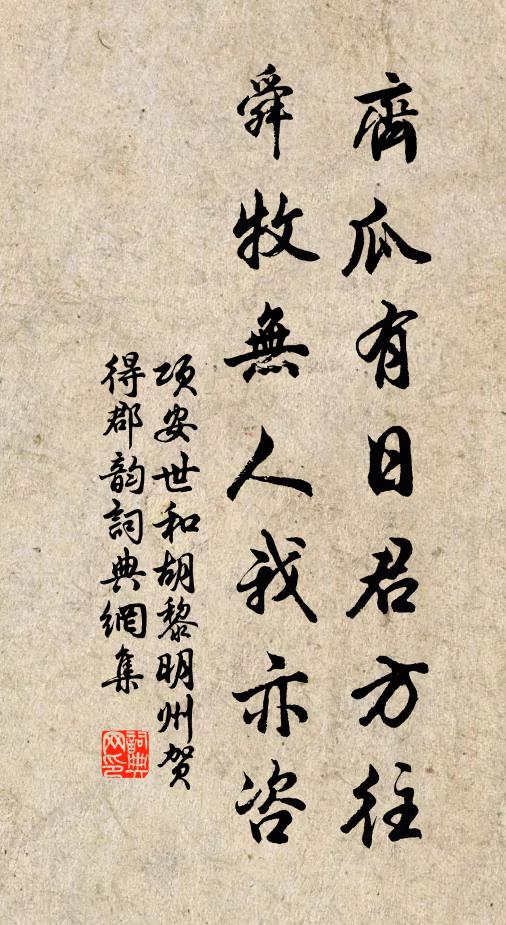 齊瓜有日君方往
舜牧無人我亦咨
項安世和胡黎明州賀
得郡韵詞典網集
詞典网印